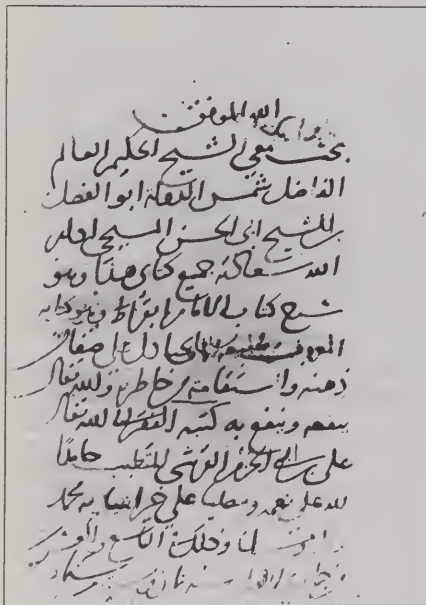 الله الموفق
بحث معي الشيخ الحكيم العالم
الفاضل شمس الدولة ابو الفضل
بن الشيخ ابى الحسن المسيحى ادام
الله سعادته جميع كتابى هذا وهو
شرح كتاب الامام ابقراط وهو كتابه
المعروف دل على صفاء
ذهنه واستقامة خاطره والله تعالى
ينفعه وينفع به كتبه الفقير الى الله تعالى
على بن ابى الحزم القرشى المتطبب حامدا
لله على نعمه ومصليا على خير انبيائه محمد
وذلك فى التاسع والعشرين